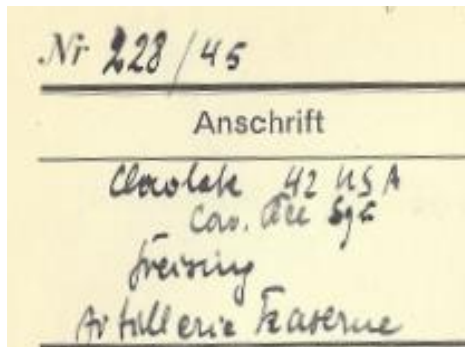 Nr 228/45
Anschrift
42 USA
Cav. Sqd
Freising
Artillerie Kaserne